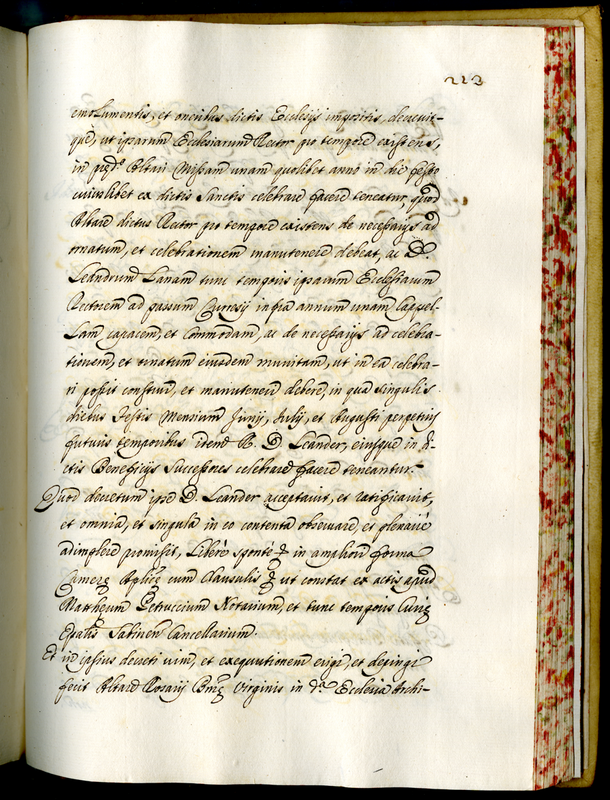 223
emolumentis, et oneribus dictis Ecclesijs impositis, decreuit-
que, ut ipsarum Ecclesiarum Rector pro tempore existens,
in pred.º Altari Missam unam quolibet anno in die festo
cuiuslibet ex dictis Sanctis celebrare facere teneatur, quod
Altare dictus Rector pro tempore existens de necessarijs ad
ornatum, et celebrationem manutenere debeat, ac D.
Leandrum Lanam tunc temporis ipsarum Ecclesiarum
Rectorem ad passum Curesij infra annum unam Cappel-
lam capacem, et commodam, ac de necessarijs ad celebra-
tionem, et ornatum eiusdem munitam, ut in ea celebra-
ri possit construi, et manutenere debere, in qua singulis
dictus festis Mensium Junij, Julij, et Augusti perpetuis
futuris temporibus item R. D. Leander, eiusque in di-
ctis Beneficijs Successores celebrare facere teneantur.
Quod decretum ipse D. Leander acceptauit, et ratificauit,
et omnia, et singula in eo contenta obseruare et plenarie
adimplere promisit, Liberè spontè & in ampliori forma
Cameræ Aplicæ cum clausulis & ut constat ex actis apud
Mattheum Petruccium Notarium, et tunc temporis Curiæ
Epalis Sabinen Cancellarium.
Et in ipsius decreti uim, et exequutionem erigi, et depingi
fecit Altare Rosarij Bmæ Virginis in d.ª Ecclesia Archi-